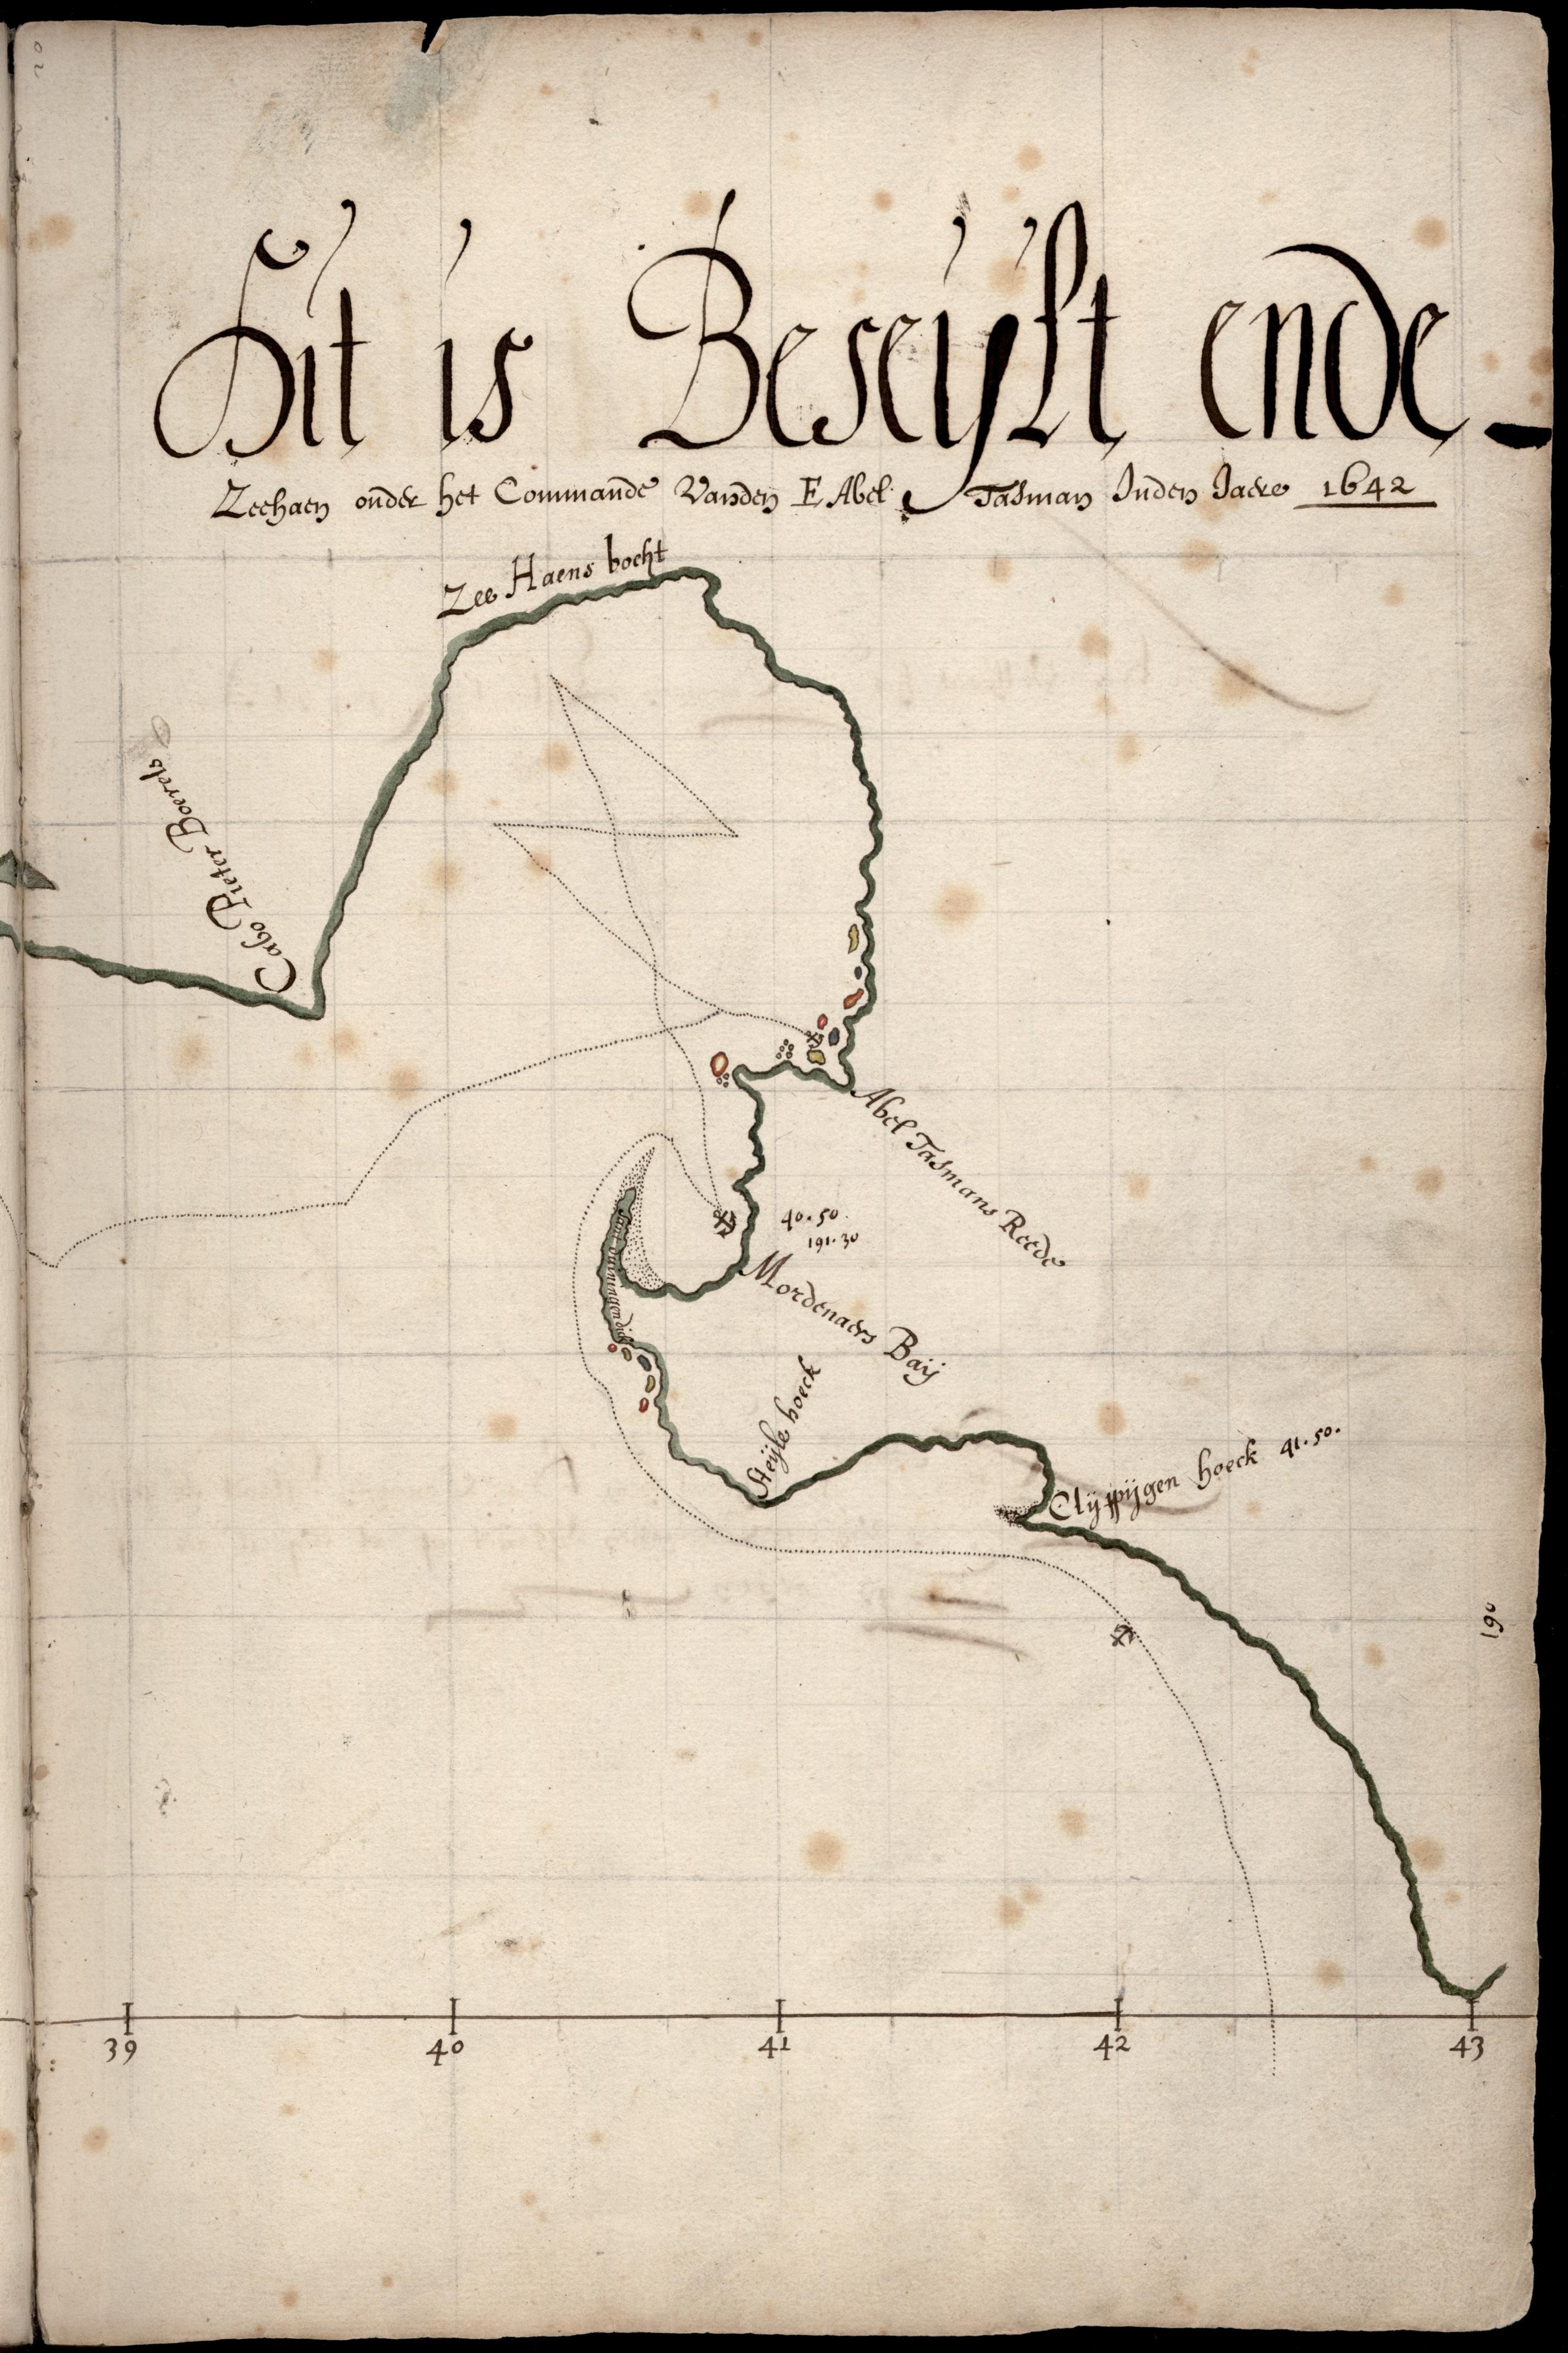 Dit is Beseijlt ende
Zeehaen onder het Commande Vanden E Abel Tasman Inden Jaere 1642
Zee Haens bocht
Cabo Pieter Boerels
Abel Tasmans Reede
40.50.
191.30
Mordenaers Baij
Steijle hoeck
Clijppijgen hoeck 41.50.
190
39 40 41 42 43